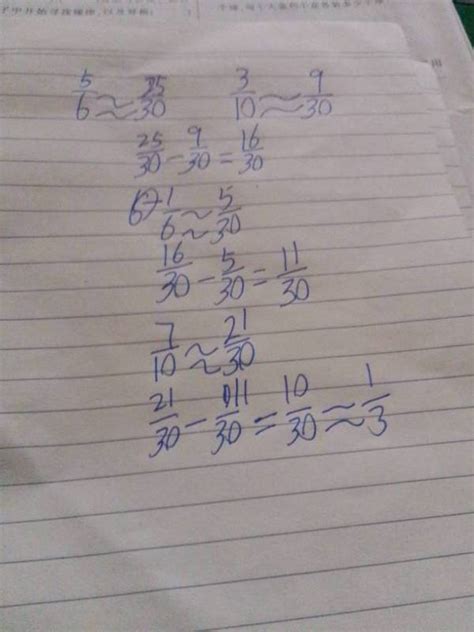 5/6 ≈ 25/30 3/10 ≈ 9/30
25/30 - 9/30 = 16/30
1/6 ≈ 5/30
16/30 - 5/30 = 11/30
7/10 ≈ 21/30
21/30 - 11/30 = 10/30 ≈ 1/3